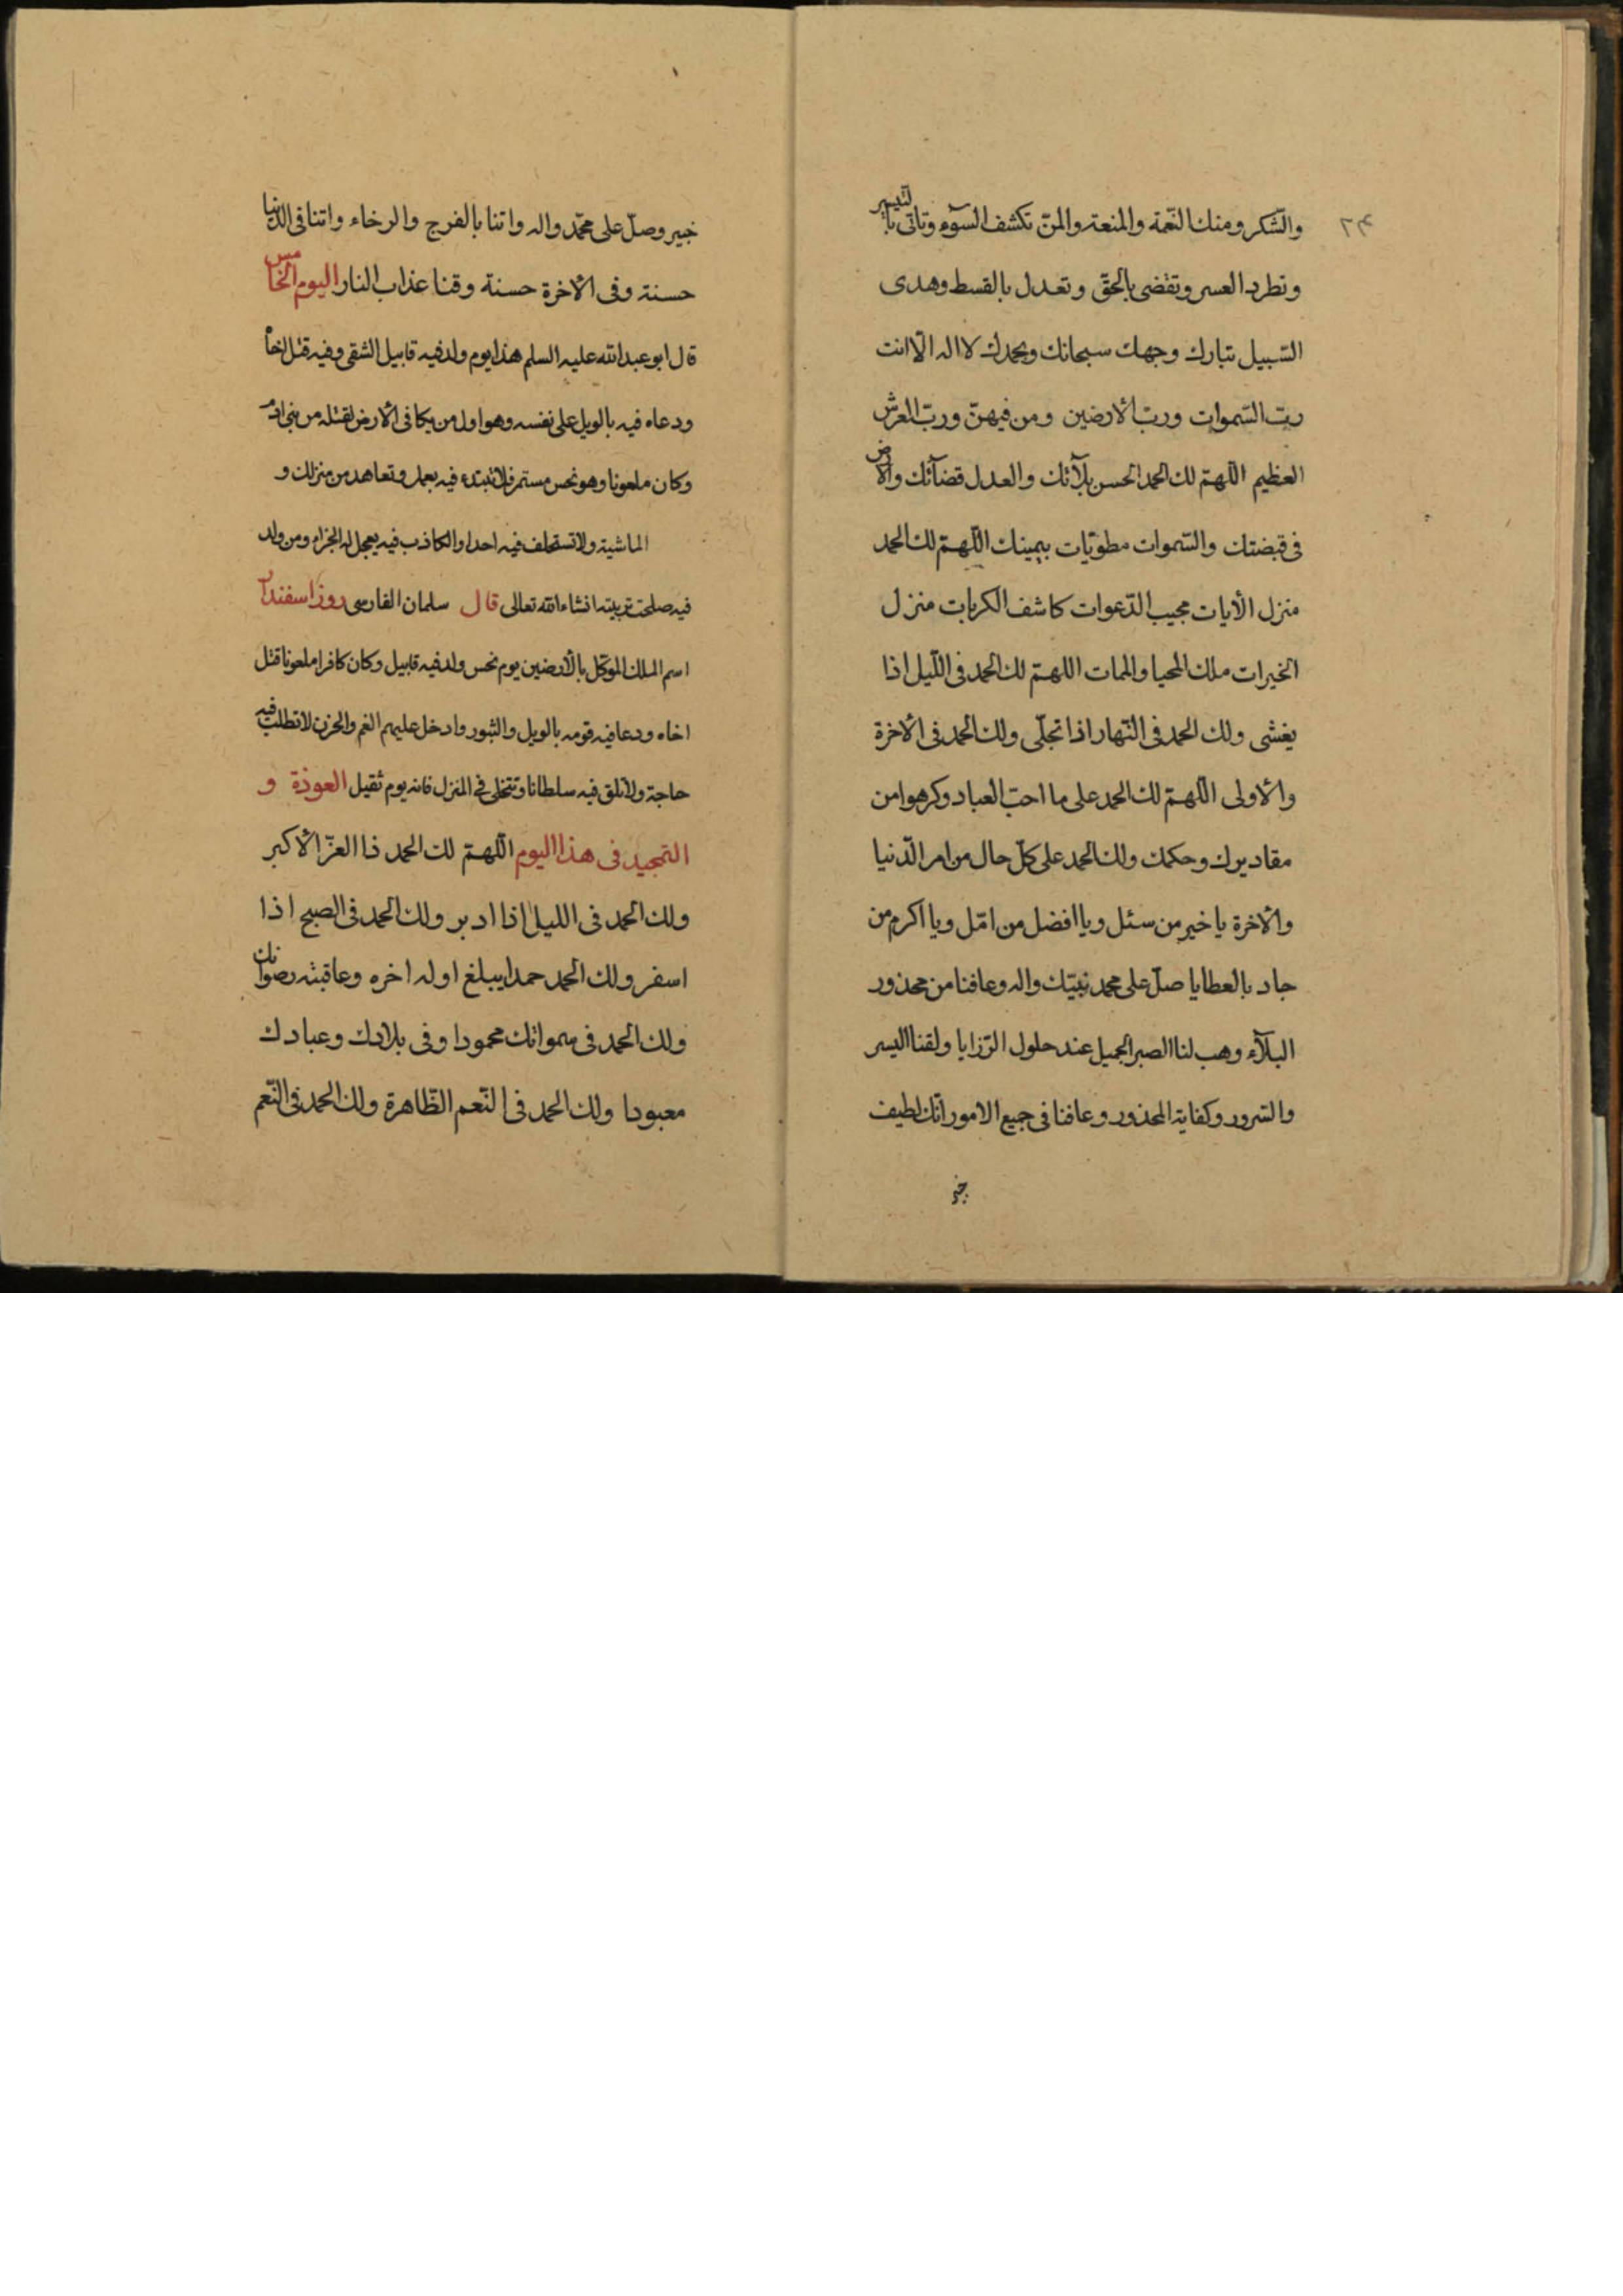 ٢٣
والشّكر ومنك النّعمة والمنعة والمنّ تكشف السوٓء وتاتى باليسير
وتطرد العسر وتقضى بالحق وتعدل بالقسط وهدى
السّبيل تبارك وجهك سبحانك وبحمدك لا اله الّا انت
ربّ السّموات وربّ الارضين ومن فيهنّ وربّ العرش
العظيم اللّهمّ لك الحمد الحسن بلآئك والعدل قضآئك والارض
فى قبضتك والسّموات مطويّات بيمينك اللّهمّ لك الحمد
منزل الأيات مجيب الدّعوات كاشف الكربات منزل
الخيرات ملك المحيا والممات اللهمّ لك الحمد فى اللّيل اذا
يغشى ولك الحمد فى النّهار اذا تجلّى ولك الحمد فى الأخرة
والأولى اللّهمّ لك الحمد على ما احبّ العباد وكرهوا من
مقاديرك وحكمك ولك الحمد على كلّ حال من امر الدّنيا
والأخرة يا خير من سئل ويا افضل من امّل ويا اكرم من
جاد بالعطايا صلّ على محمد نبيّك واله وعافنا من محذور
البلآء وهب لنا الصبر الجميل عند حلول الرّزايا ولقنا اليسر
والسّرور وكفاية المحذور وعافنا فى جميع الامور انّك لطيف
خبير
خبير وصلّ على محمّد واله واتنا بالفرج والرخاء واتنا فى الدّنيا
حسنة وفى الأخرة حسنة وقنا عذاب النار اليوم الخامس
قال ابو عبد الله عليه السلم هذا يوم ولد فيه قابيل الشقى وفيه قتل اخاه
ودعاه فيه بالويل على نفسه وهو اول من بكا فى الأرض لقتله من بنى ادم
وكان ملعونا وهو نحس مستمر فلا تبتدء فيه بعمل وتعاهد من منزلك و
الماشية ولا تستحلف فيه احدا والكاذب فيه يعجل له الجزاء ومن ولد
فيه صلحت تربيته انشاء الله تعالى قال سلمان الفارسى روز اسفندار
اسم الملك الموكّل بالأرضين يوم نحس ولد فيه قابيل وكان كافرا ملعونا قتل
اخاه ودعا فيه قومه بالويل والثبور وادخل عليهم الغم والحزن لا تطلب فيه
حاجة ولا تلق فيه سلطانا وتتخلى فى المنزل فانه يوم ثقيل العوذة و
التمجيد فى هذا اليوم اللّهمّ لك الحمد ذا العزّ الأكبر
ولك الحمد فى الليل اذا ادبر ولك الحمد فى الصبح اذا
اسفر ولك الحمد حمدا يبلغ اوله اخره وعاقبته رضوانك
ولك الحمد فى سمواتك محمودا وفى بلادك وعبادك
معبودا ولك الحمد فى النّعم الظّاهرة ولك الحمد فى النّعم